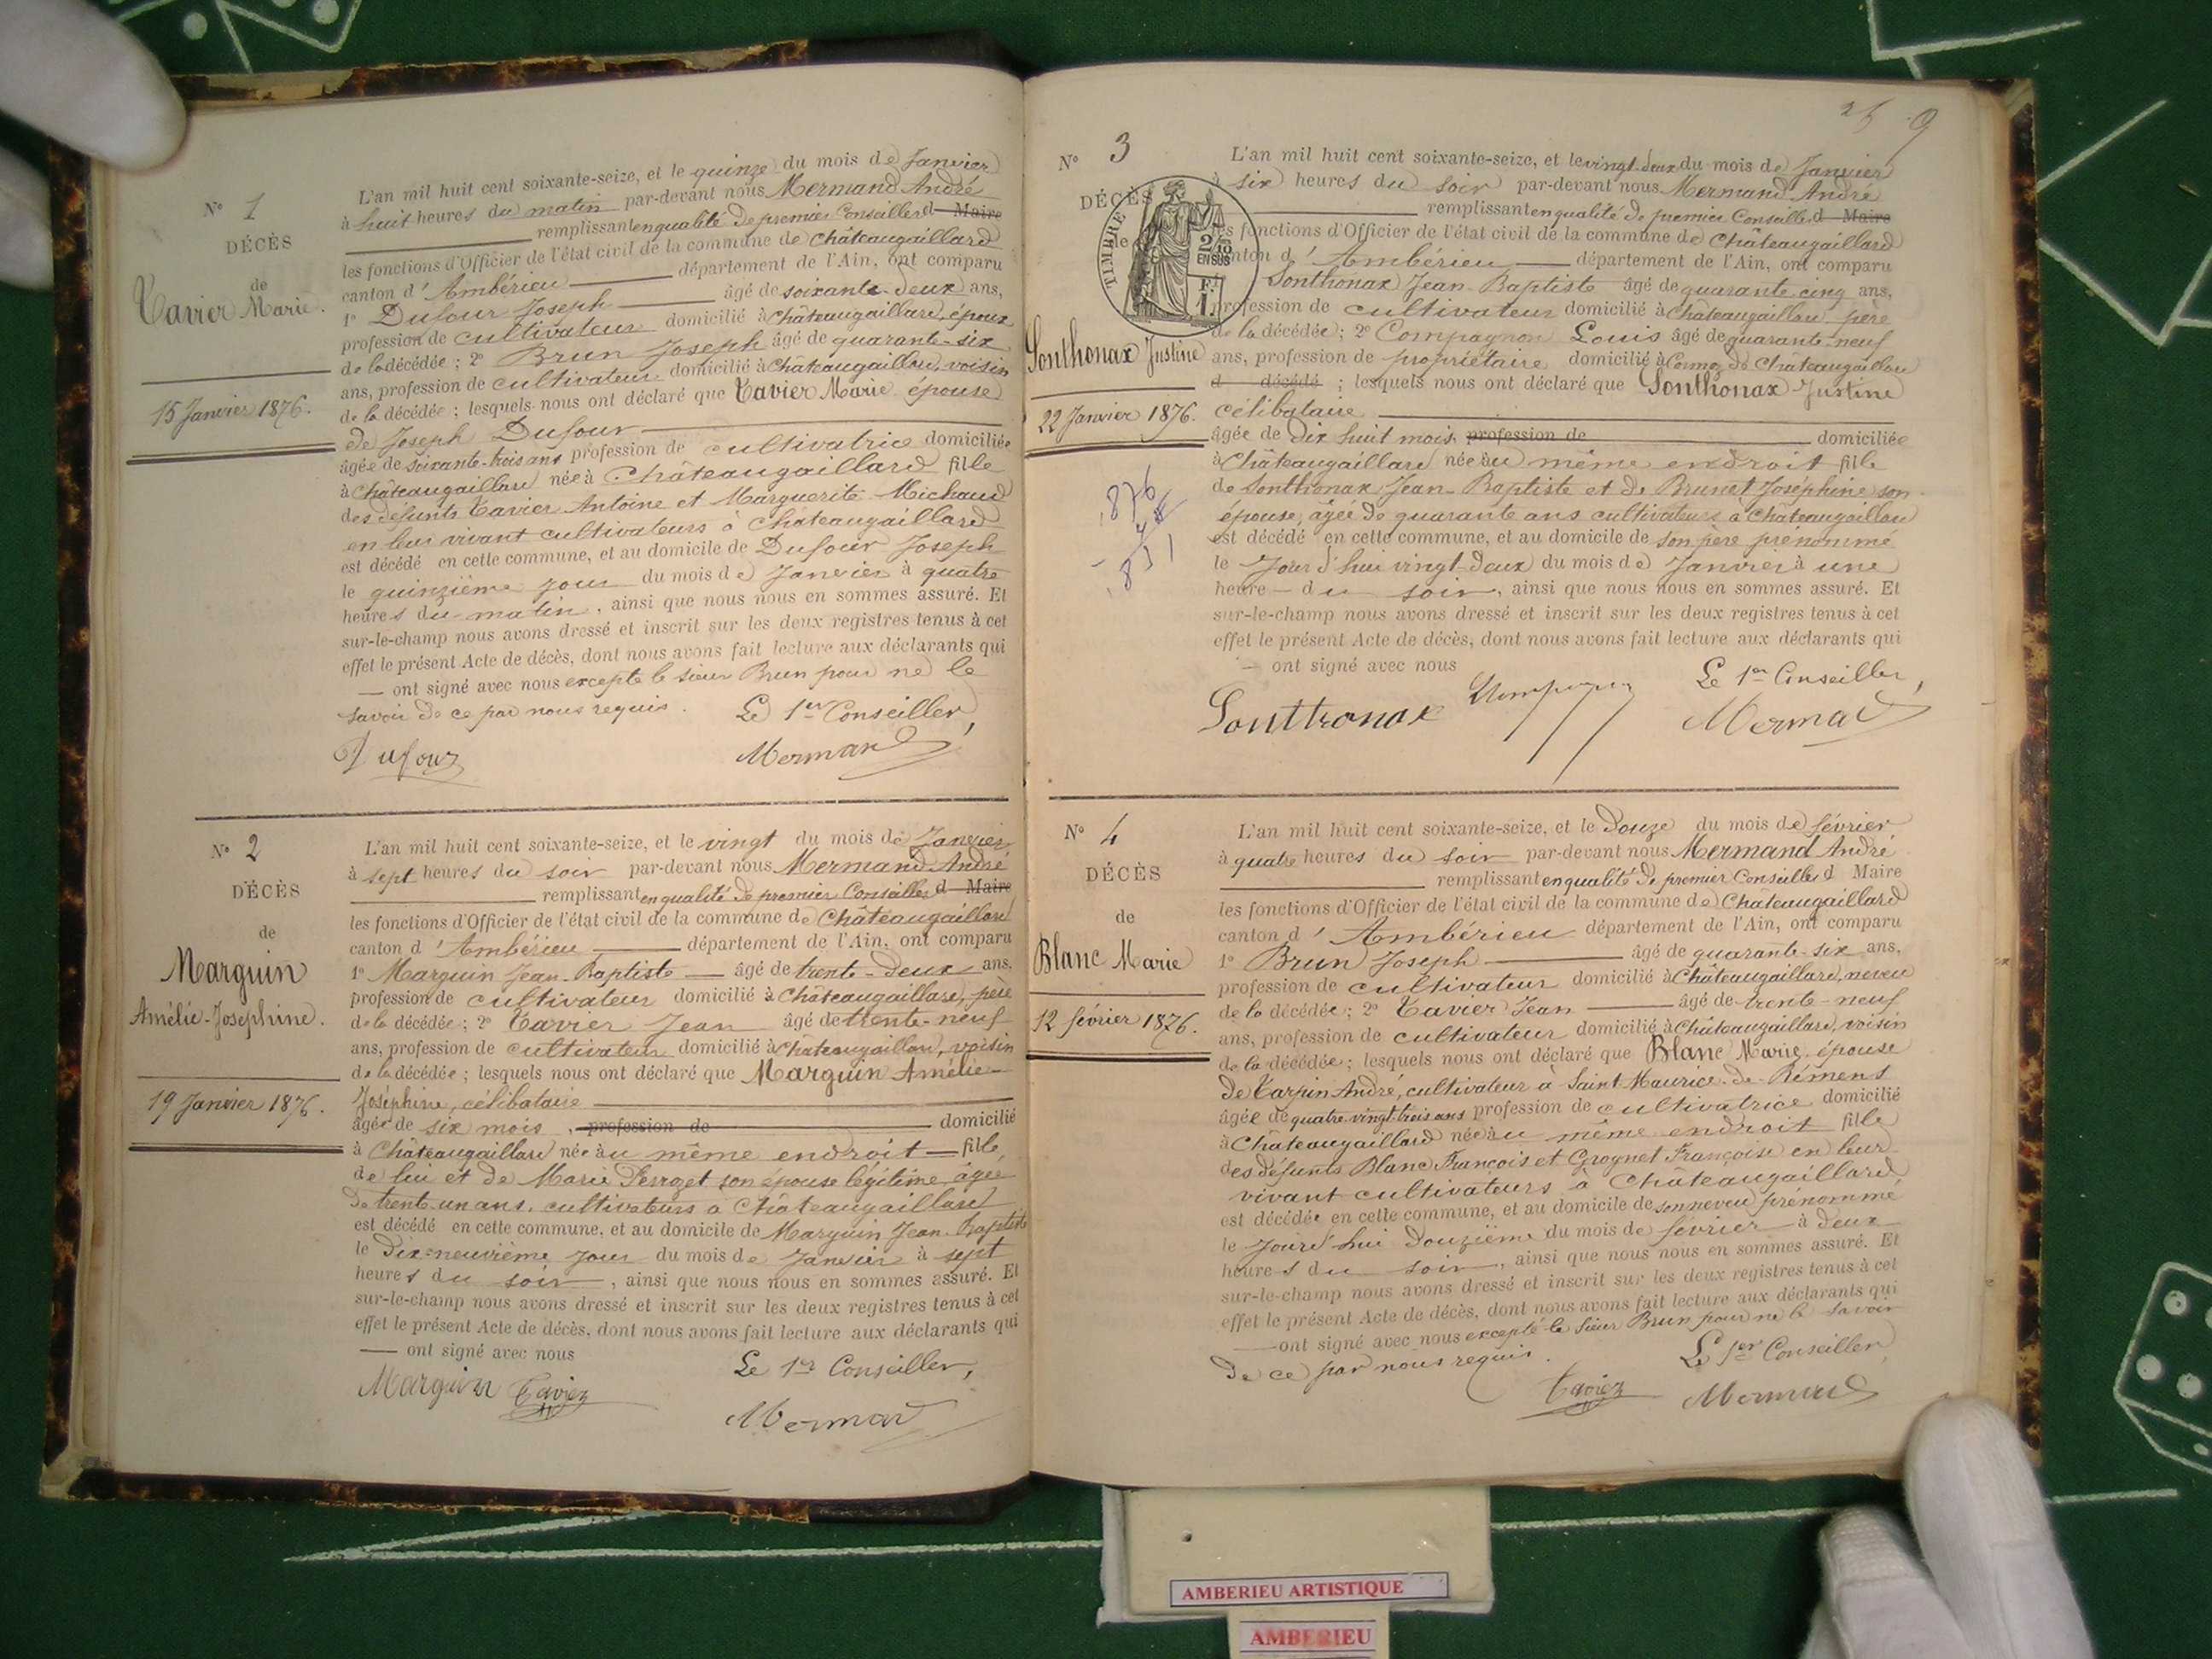 N° 1
DÉCÈS
de
Tavier Marie.
15 Janvier 1876.
L'an mil huit cent soixante-seize, et le quinze du mois de Janvier
à huit heures du matin par-devant nous Mermand André
remplissant en qualité de premier Conseiller d Maire
les fonctions d'Officier de l'état civil de la commune de Châteaugaillard
canton d'Ambérieu département de l'Ain, ont comparu
1° Dufour Joseph âgé de soixante-deux ans,
profession de cultivateur domicilié à Châteaugaillard, époux
de la décédée ; 2° Brun Joseph âgé de quarante-six
ans, profession de cultivateur domicilié à Châteaugaillard, voisin
de la décédée ; lesquels nous ont déclaré que Tavier Marie épouse
de Joseph Dufour
âgée de soixante-trois ans profession de cultivatrice domiciliée
à Châteaugaillard née à Châteaugaillard fille
des défunts Tavier Antoine et Marguerite Michaud
en leur vivant cultivateurs à Châteaugaillard
est décédé en cette commune, et au domicile de Dufour Joseph
le quinzième jour du mois de Janvier à quatre
heures du matin, ainsi que nous nous en sommes assuré. Et
sur-le-champ nous avons dressé et inscrit sur les deux registres tenus à cet
effet le présent Acte de décès, dont nous avons fait lecture aux déclarants qui
— ont signé avec nous excepté le sieur Brun pour ne le
savoir de ce par nous requis. Le 1er Conseiller,
Dufour Mermand
N° 2
DÉCÈS
de
Marguin
Amélie-Josephine.
19 Janvier 1876.
L'an mil huit cent soixante-seize, et le vingt du mois de Janvier
à sept heures du soir par-devant nous Mermand André
remplissant en qualité de premier Conseiller d Maire
les fonctions d'Officier de l'état civil de la commune de Châteaugaillard
canton d'Ambérieu département de l'Ain, ont comparu
1° Marguin Jean-Baptiste âgé de trente-deux ans,
profession de cultivateur domicilié à Châteaugaillard, père
de la décédée ; 2° Tavier Jean âgé de trente-neuf
ans, profession de cultivateur domicilié à Châteaugaillard, voisin
de la décédée ; lesquels nous ont déclaré que Marguin Amélie-
Joséphine, célibataire
âgée de six mois, profession de domicilié
à Châteaugaillard née au même endroit fille
de lui et de Marie Perroget son épouse légitime, âgée
de trente-un ans, cultivateurs à Châteaugaillard
est décédé en cette commune, et au domicile de Marguin Jean-Baptiste
le dix-neuvième jour du mois de Janvier à sept
heures du soir, ainsi que nous nous en sommes assuré. Et
sur-le-champ nous avons dressé et inscrit sur les deux registres tenus à cet
effet le présent Acte de décès, dont nous avons fait lecture aux déclarants qui
— ont signé avec nous
Le 1er Conseiller,
Marguin Tavier
Mermand
25 9
N° 3
DÉCÈS
TIMBRE
2/10
EN SUS
1 F.
Sonthonax Justine
22 Janvier 1876.
L'an mil huit cent soixante-seize, et le vingt-deux du mois de Janvier
à six heures du soir par-devant nous Mermand André
remplissant en qualité de premier Conseiller d Maire
les fonctions d'Officier de l'état civil de la commune de Châteaugaillard
canton d'Ambérieu département de l'Ain, ont comparu
Sonthonax Jean-Baptiste âgé de quarante-cinq ans,
profession de cultivateur domicilié à Châteaugaillard père
de la décédée ; 2° Compagnon Louis âgé de quarante-neuf
ans, profession de propriétaire domicilié à Cormoz de Châteaugaillard
d décédé ; lesquels nous ont déclaré que Sonthonax Justine
célibataire
âgée de dix huit mois, profession de domiciliée
à Châteaugaillard née au même endroit fille
de Sonthonax Jean-Baptiste et de Brunet Joséphine son
épouse, âgée de quarante ans cultivateurs à Châteaugaillard
est décédé en cette commune, et au domicile de son père prénommé
le Jour d'hui vingt-deux du mois de Janvier à une
heure du soir, ainsi que nous nous en sommes assuré. Et
sur-le-champ nous avons dressé et inscrit sur les deux registres tenus à cet
effet le présent Acte de décès, dont nous avons fait lecture aux déclarants qui
— ont signé avec nous
Le 1er Conseiller,
Sonttronax Mermand
N° 4
DÉCÈS
de
Blanc Marie
12 février 1876.
L'an mil huit cent soixante-seize, et le douze du mois de février
à quatre heures du soir par-devant nous Mermand André
remplissant en qualité de premier Conseiller d Maire
les fonctions d'Officier de l'état civil de la commune de Châteaugaillard
canton d'Ambérieu département de l'Ain, ont comparu
1° Brun Joseph âgé de quarante-six ans,
profession de cultivateur domicilié à Châteaugaillard, neveu
de la décédée ; 2° Tavier Jean âgé de trente-neuf
ans, profession de cultivateur domicilié à Châteaugaillard, voisin
de la décédée ; lesquels nous ont déclaré que Blanc Marie, épouse
de Tarpin André, cultivateur à Saint Maurice-de-Rémens
âgée de quatre-vingt-trois ans profession de cultivatrice domicilié
à Châteaugaillard née au même endroit fille
des défunts Blanc François et Grognet Françoise en leur
vivant cultivateurs à Châteaugaillard
est décédée en cette commune, et au domicile de son neveu prénommé
le Jour d'hui douzième du mois de février à deux
heures du soir, ainsi que nous nous en sommes assuré. Et
sur-le-champ nous avons dressé et inscrit sur les deux registres tenus à cet
effet le présent Acte de décès, dont nous avons fait lecture aux déclarants qui
— ont signé avec nous excepté le Sieur Brun pour ne le savoir
de ce par nous requis. Le 1er Conseiller,
Tavier Mermand
AMBERIEU ARTISTIQUE
AMBERIEU